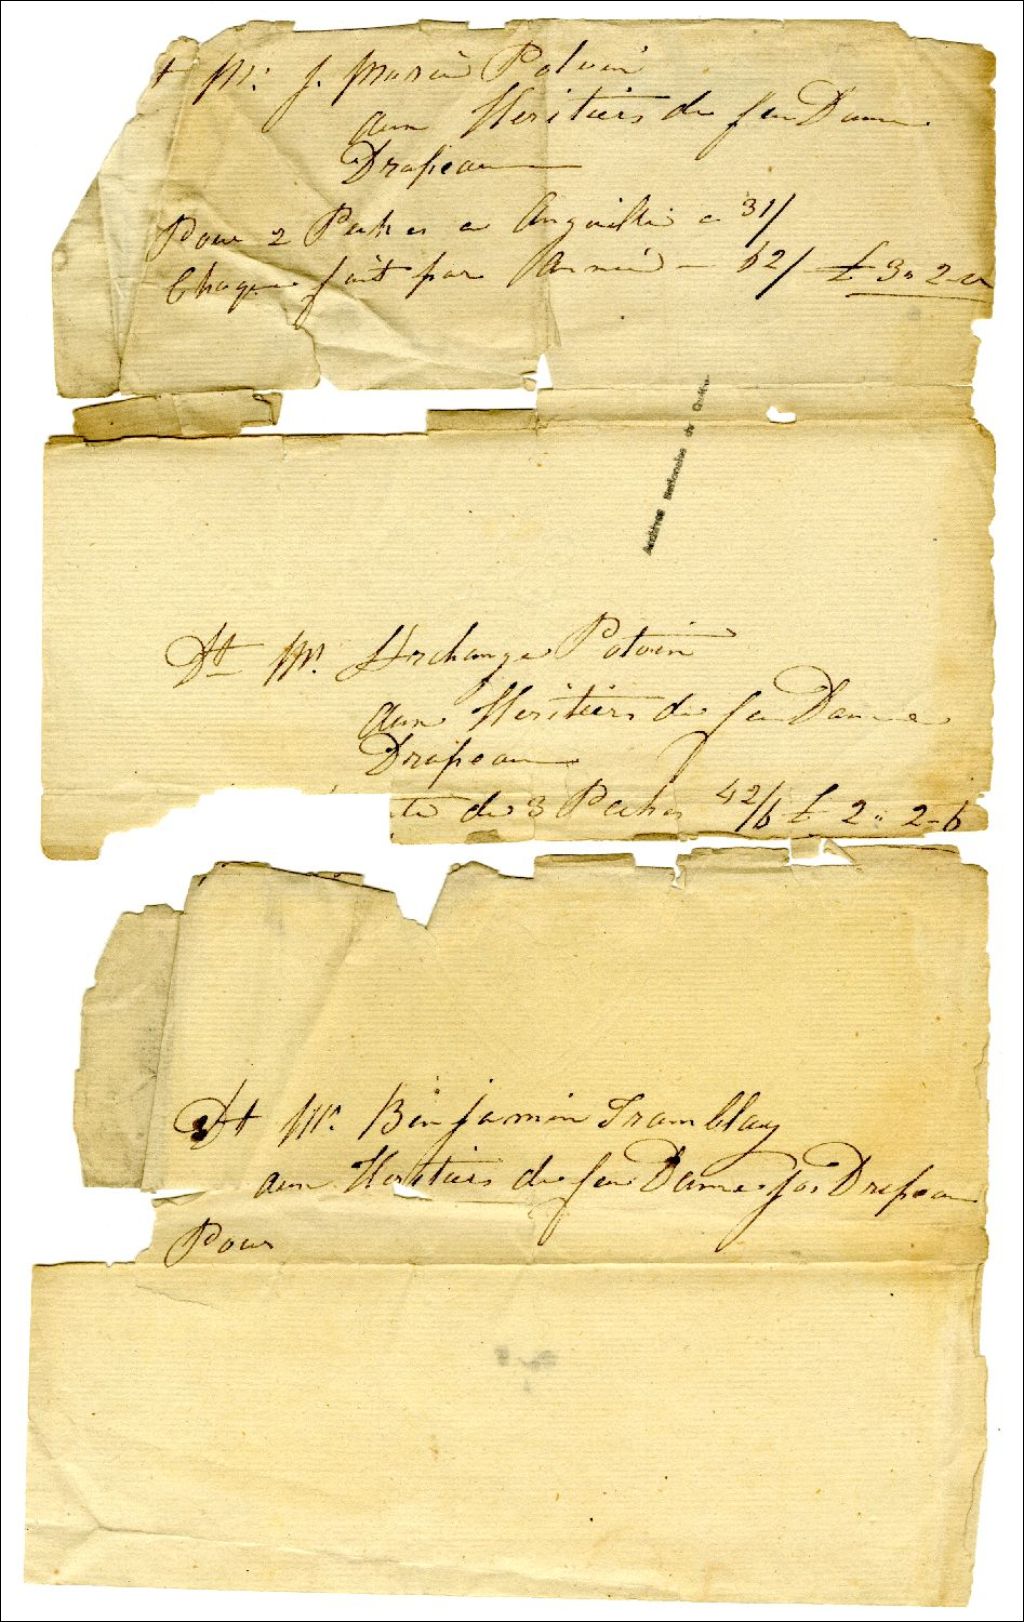 t Mr. J. Marie Potvin
aux Heritiers de feu Dame
Drapeau
Pour 2 Peches a Anguille a 31/
Chaque fait par Année - 62/ £ 3" 2-0
Archives Nationales du Québec
Dt Mr. Archange Potvin
aux Heritiers de feu Dame
Drapeau
te de 3 Peches 42/6 £ 2" 2-6
Dt Mr. Binjamin Tramblay
aux Heritiers de feu Dame Jos Drapeau
Pour